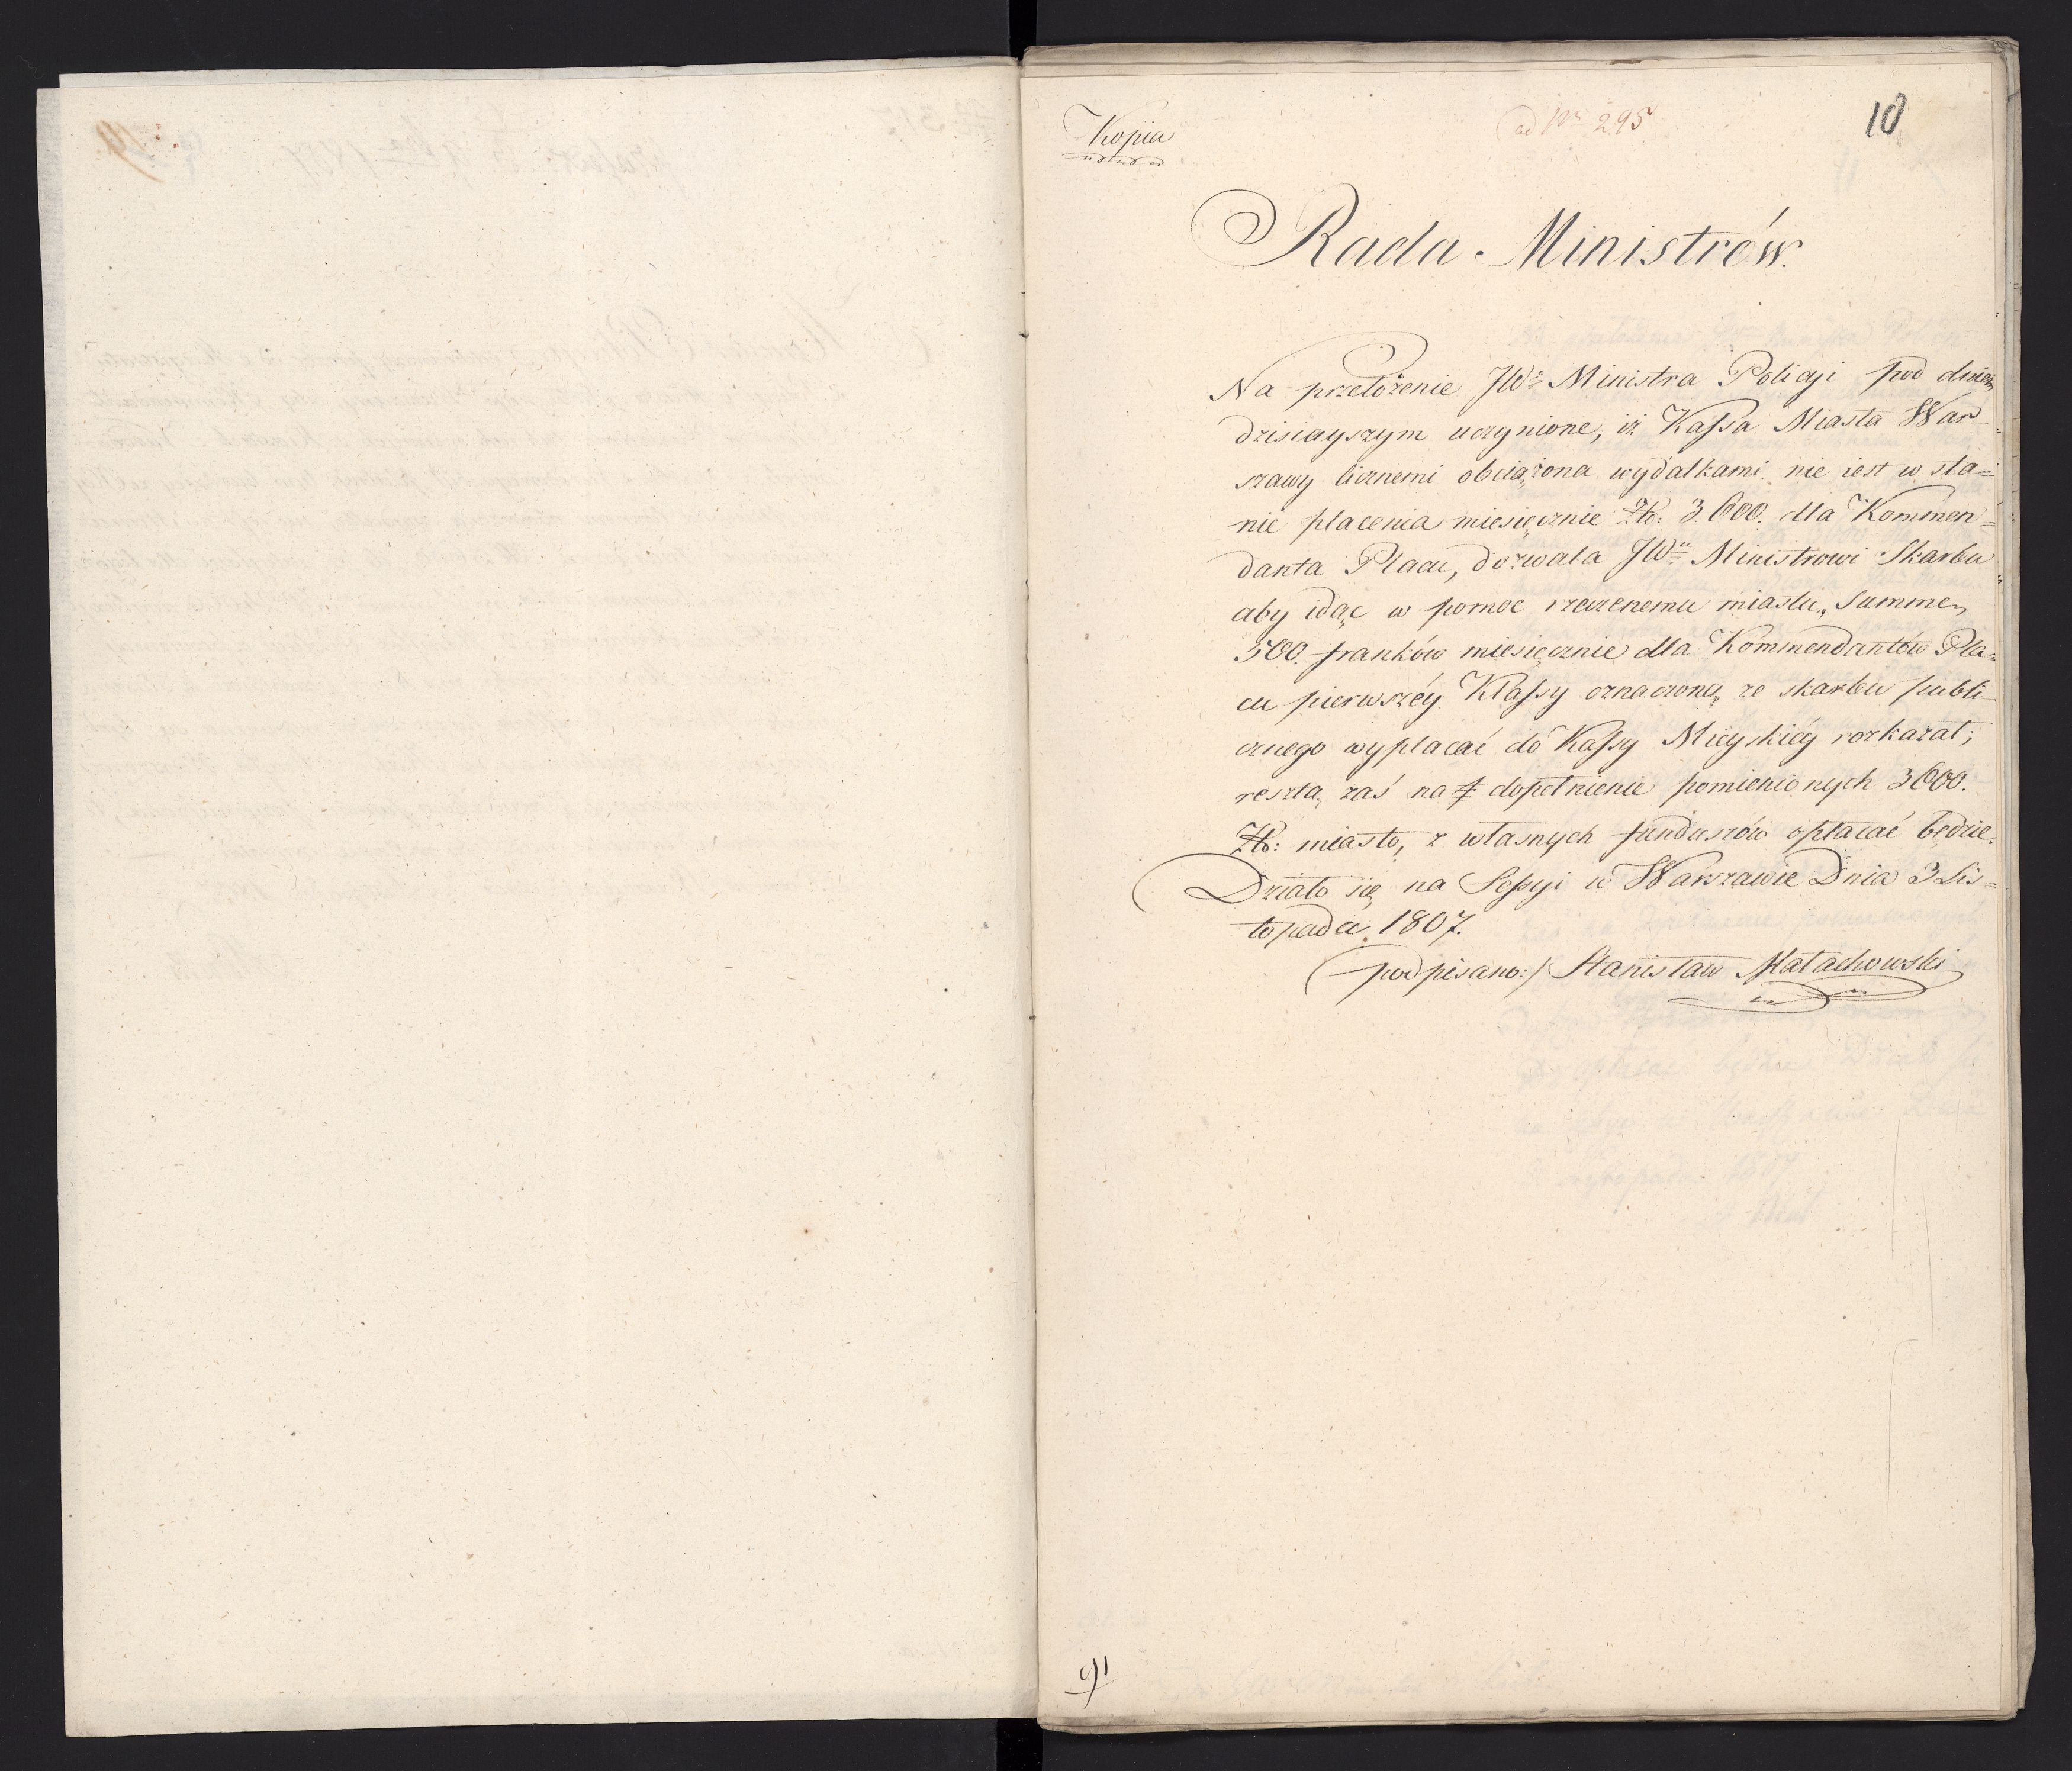 Kopia
ad Nr 295
10
Rada Ministrów.
Na przełożenie JWo Ministra Policyi pod dniem
dzisiayszym uczynione, iż Kassa Miasta War-
szawy licznemi obciążona wydatkami nie iest w sta=
nie płacenia miesięcznie Zł: 3.600. dla Kommen=
danta Placu, dozwala JWu Ministrowi Skarbu
aby idąc w pomoc rzeczonemu miastu, Summę
500. franków miesięcznie dla Kommendantów Pla=
cu pierwszéy Klassy oznaczoną ze skarbu publi-
cznego wypłacać do Kassy Mieyskiéy rozkazał;
resztą zaś na dopełnienie pomienionych 3600.
Zł: miasto, z własnych funduszów opłacać będzie.
Działo się na Sessyi w Warszawie Dnia 3 Lis=
topada 1807.
(podpisano:) Stanisław Małachowski
91